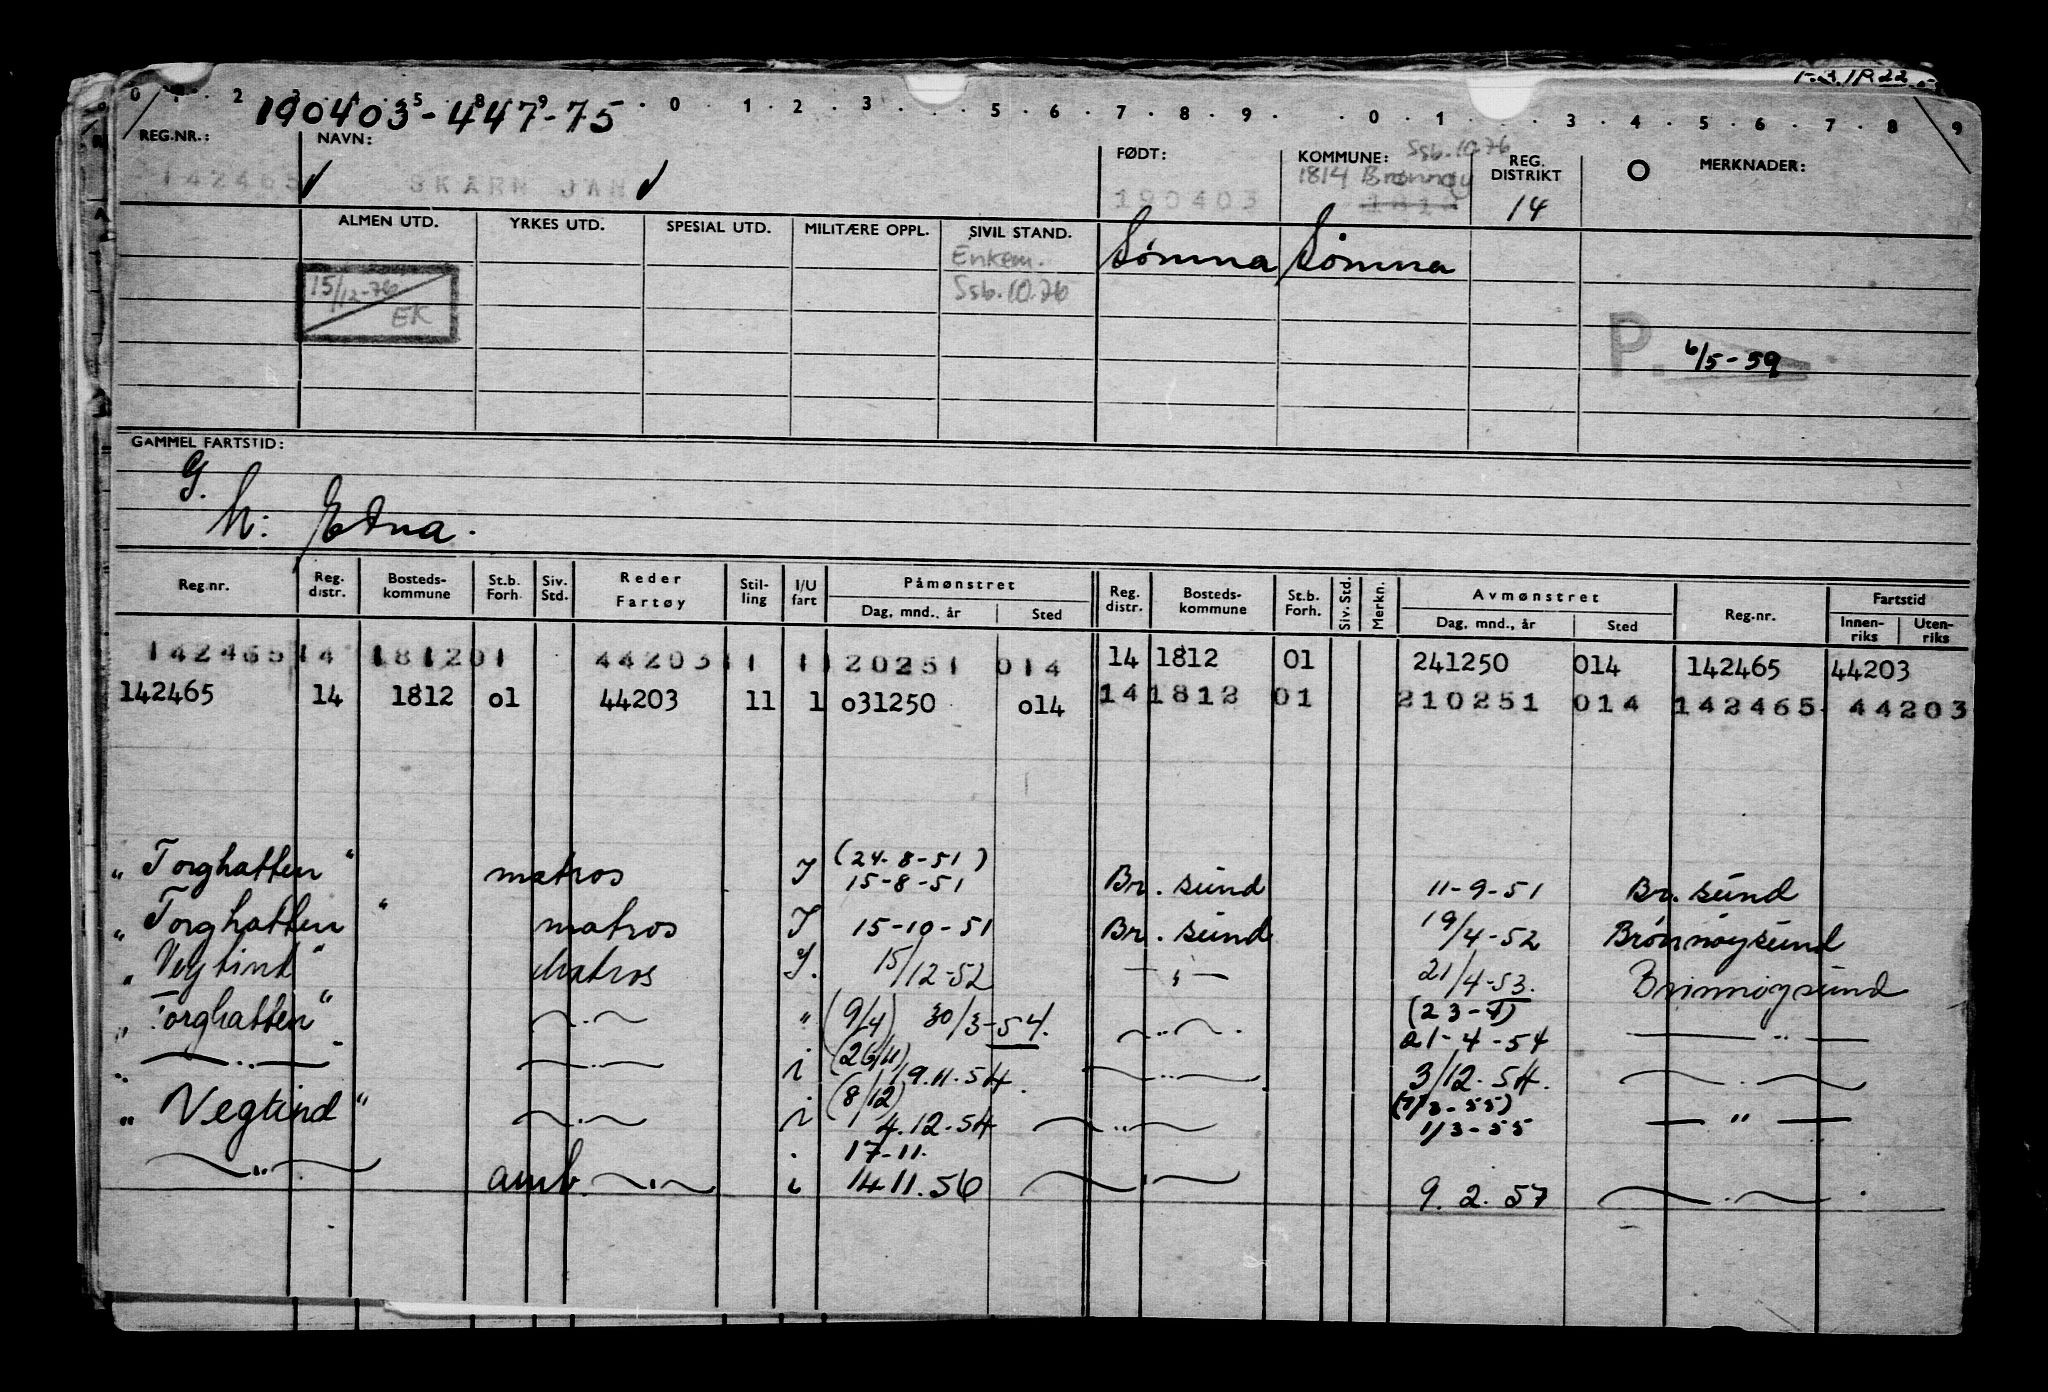 190403-447-75
REG.NR.: NAVN: FØDT: KOMMUNE: Ssb.10.76 REG. DISTRIKT MERKNADER:
142465 SKARN JAN 190403 1814 Brønnøy 1812 14
ALMEN UTD. YRKES UTD. SPESIAL UTD. MILITÆRE OPPL. SIVIL STAND.
Enkem. Sømna Sømna
15/12-76 EK Ssb.10.76
P. 6/5-59
GAMMEL FARTSTID:
G.
M: Edna.
Reg.nr. Reg. distr. Bosteds-kommune St.b. Forh. Siv. Std. Reder Fartøy Stil-ling I/U fart Påmønstret Dag, mnd., år Sted Reg. distr. Bosteds-kommune St.b. Forh. Siv. Std. Merkn. Avmønstret Dag, mnd., år Sted Reg.nr. Fartstid Innen-riks Uten-riks
142465 14 1812 01 44203 11 1 120251 014 14 1812 01 241250 014 142465 44203
142465 14 1812 o1 44203 11 1 o31250 o14 14 1812 01 210251 014 142465 44203
(24-8-51)
"Torghatten" matros I 15-8-51 Br.sund 11-9-51 Br.sund
"Torghatten" matros I 15-10-51 Br.sund 19/4-52 Brønnøysund
"Vegtind" Matros I. 15/12-52 — " — 21/4-53. Brønnøysund
"Torghatten" —..— " (9/4) 30/3-54. —..— (23-4) 21-4-54 — .. —
"—..—" — i (26/11) 19.11.54. —..— 3/12.54. —.—
"Vegtind" —..— i (8/12) 4.12.54 —..— (7/3-55) 1/3-55 — " —
17-11.
—"— amb. —.— i 14.11.56 —.— 9.2.57 —.—